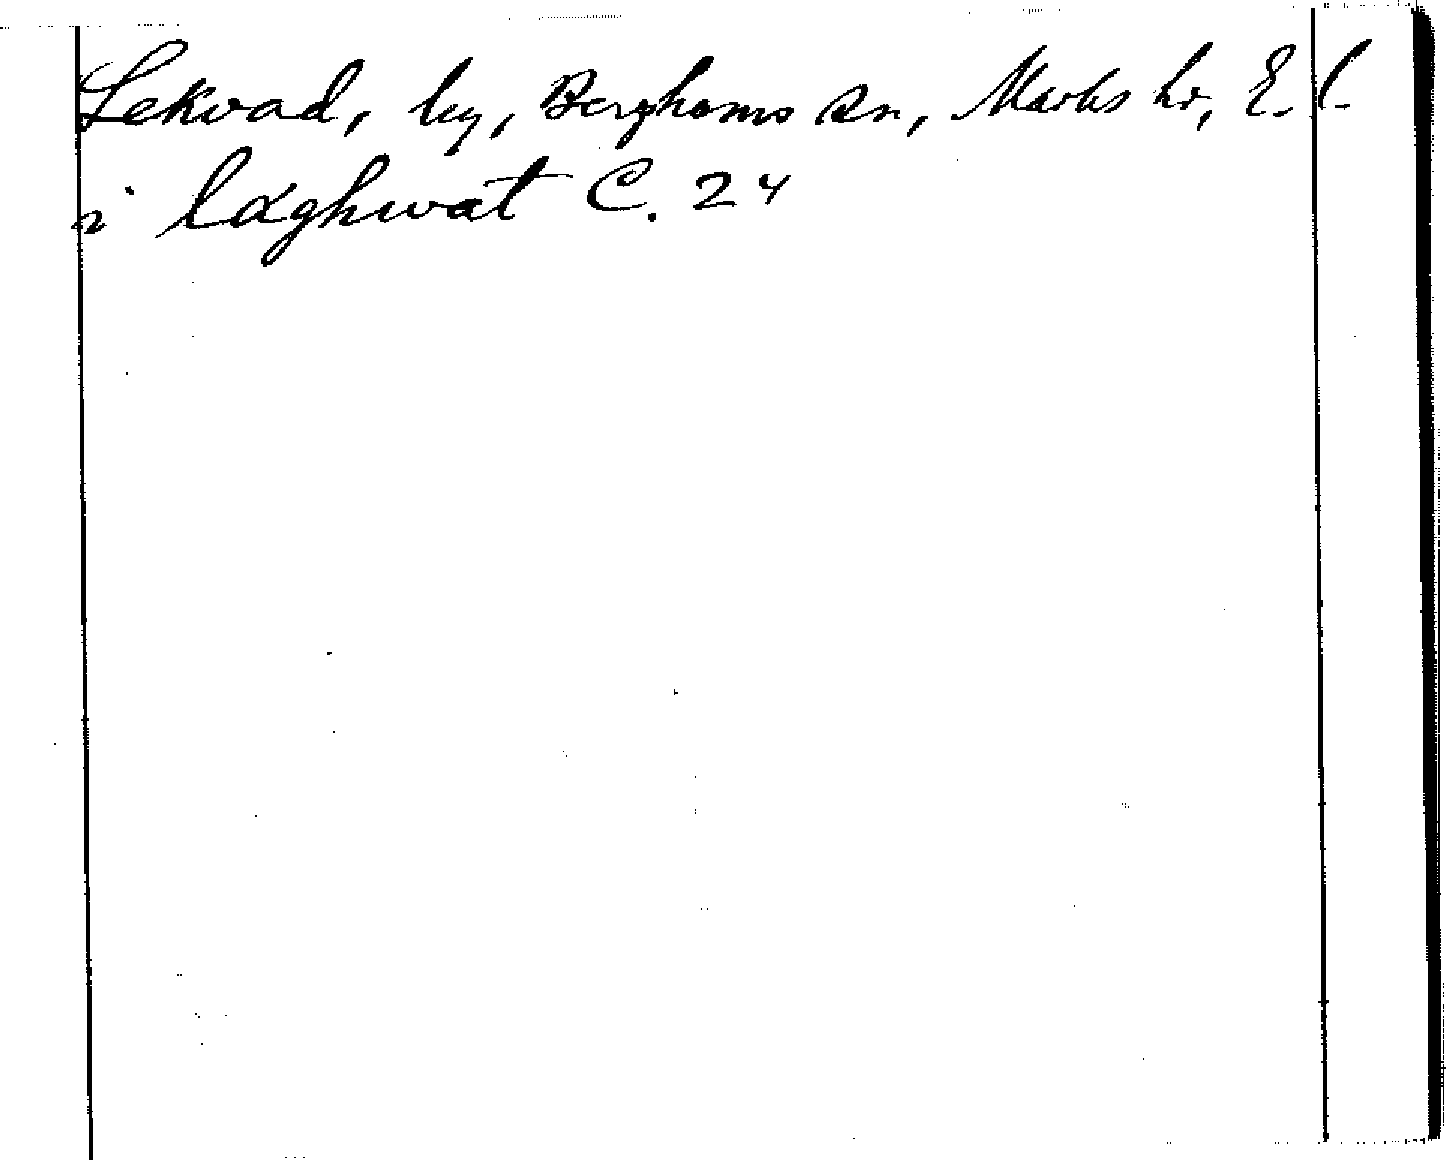 Lekvad, by, Berghems sn, Marks hr, E. l.
i laghwat C. 24